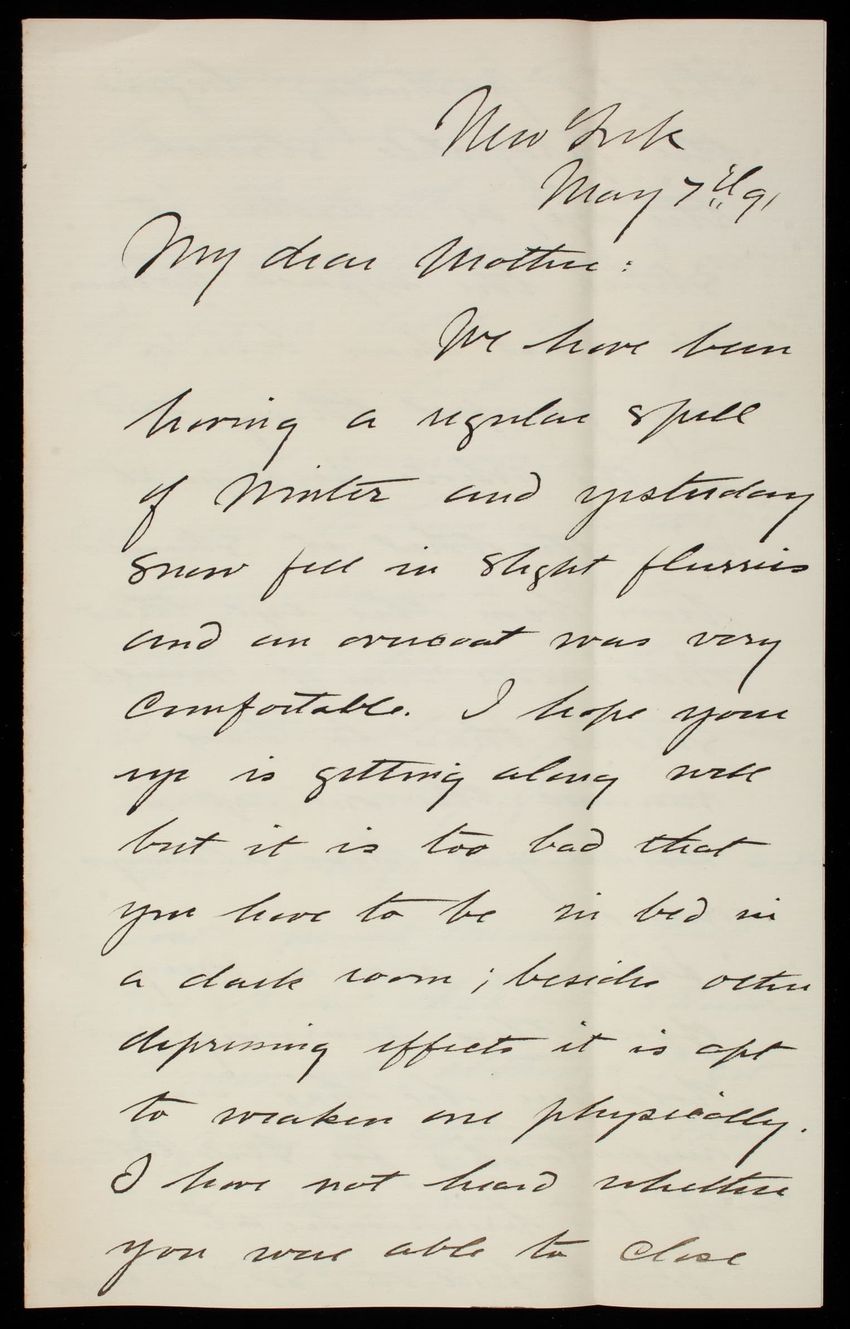 New York
May 7th 91
My dear Mother:
We have been
having a regular spell
of Winter and yesterday
snow fell in slight flurries
and an overcoat was very
comfortable. I hope your
eye is getting along well
but it is too bad that
you have to be in bed in
a dark room; besides other
depressing effects it is apt
to weaken one physically.
I have not heard whether
you were able to close